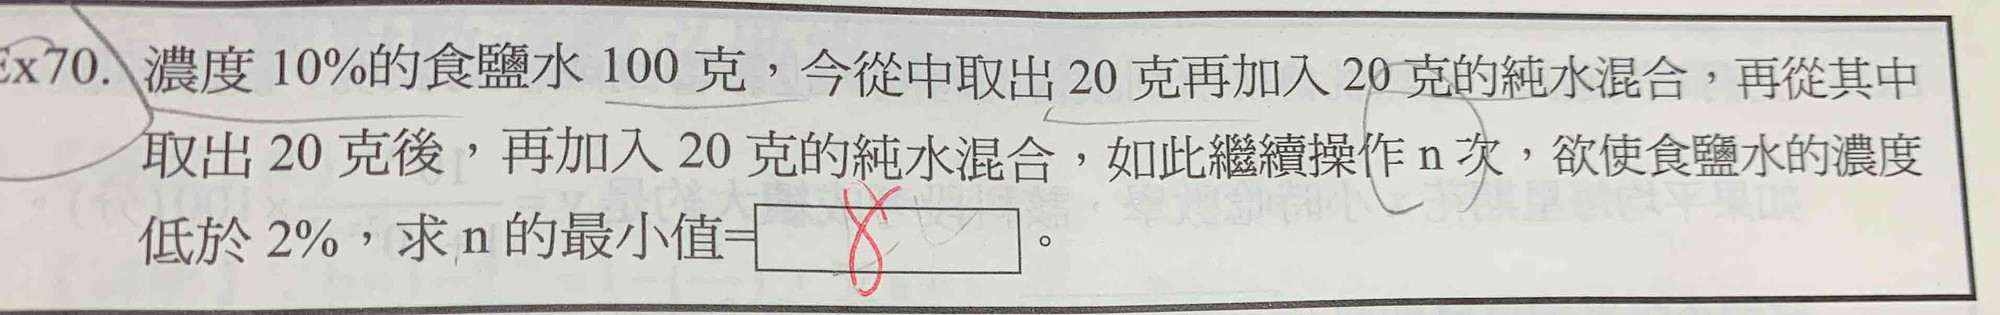 Ex70. 濃度 10%的食鹽水 100 克，今從中取出 20 克再加入 20 克的純水混合，再從其中
取出 20 克後，再加入 20 克的純水混合，如此繼續操作 n 次，欲使食鹽水的濃度
低於 2%，求 n 的最小值=8。